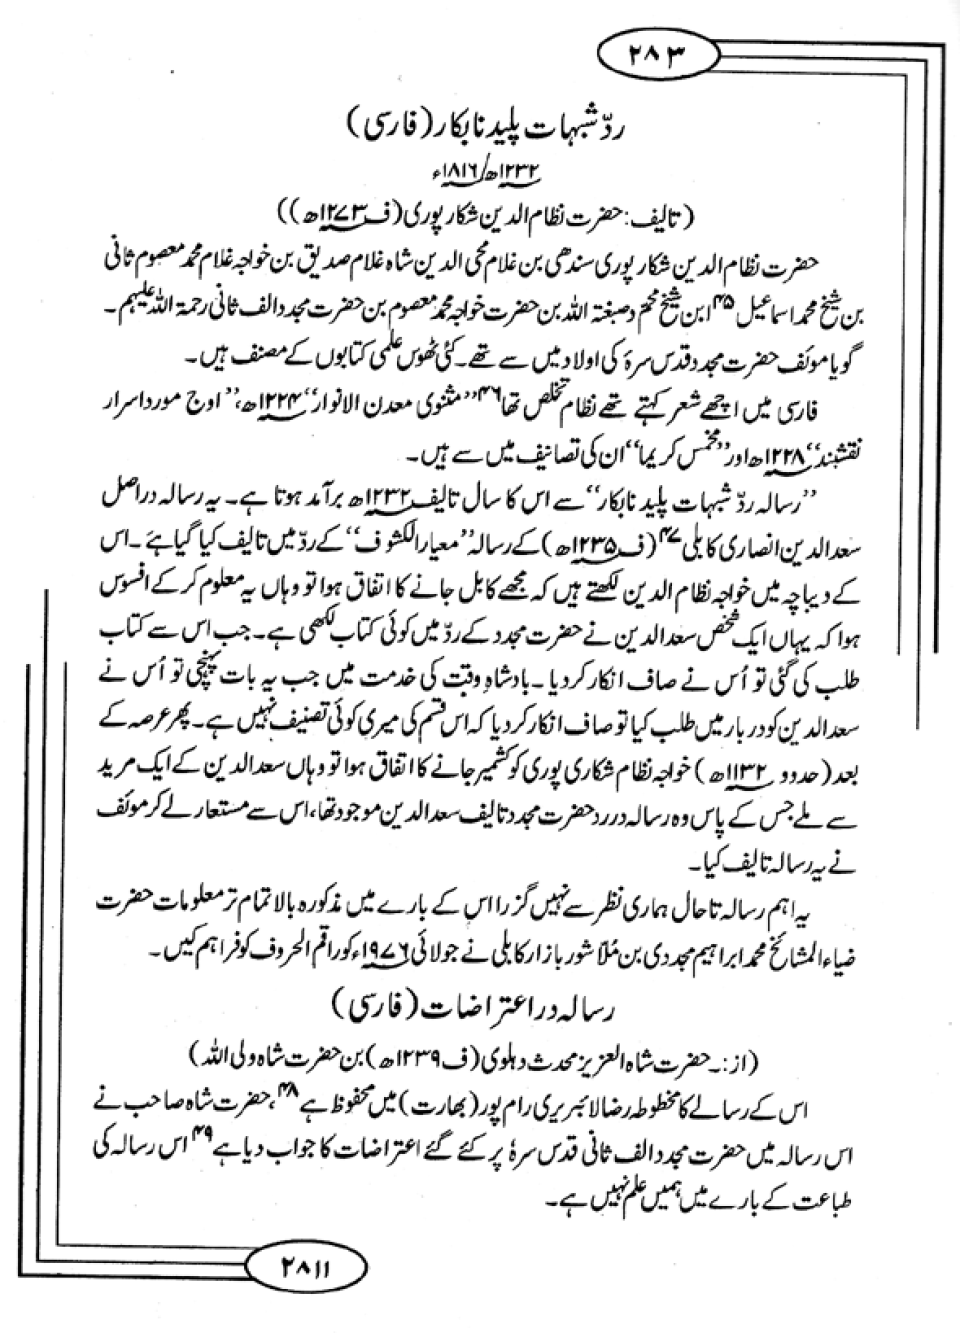 ۲۸۳
ردّ شبہات پلید نابکار (فارسی)
۱۲۳۲ھ/۱۸۱۶ء
(تالیف: حضرت نظام الدین شکارپوری (ف ۱۲۷۳ھ))
حضرت نظام الدین شکارپوری سندھی بن غلام محی الدین شاہ غلام صدیق بن خواجہ غلام محمد معصوم ثانی
بن شیخ محمد اسماعیل ۴۵ ابن شیخ محمد صبغتہ اللہ بن حضرت خواجہ محمد معصوم بن حضرت مجدد الف ثانی رحمۃ اللہ علیہم۔
گویا موئف حضرت مجدد قدس سرہٗ کی اولاد میں سے تھے۔ کئی ٹھوس علمی کتابوں کے مصنف ہیں۔
فارسی میں اچھے شعر کہتے تھے نظام تخلص تھا ۴۶ ”مثنوی معدن الانوار“ ۱۲۲۴ھ، ”اوج مورد اسرار
نقشبند“ ۱۲۲۸ھ اور ”مخمس کریما“ ان کی تصانیف میں سے ہیں۔
”رسالہ ردّ شبہات پلید نابکار“ سے اس کا سال تالیف ۱۲۳۲ھ برآمد ہوتا ہے۔ یہ رسالہ دراصل
سعد الدین انصاری کابلی ۴۷ (ف ۱۲۳۵ھ) کے رسالہ ”معیار الکشوف“ کے ردّ میں تالیف کیا گیا ہے۔ اس
کے دیباچہ میں خواجہ نظام الدین لکھتے ہیں کہ مجھے کابل جانے کا اتفاق ہوا تو وہاں یہ معلوم کر کے افسوس
ہوا کہ یہاں ایک شخص سعد الدین نے حضرت مجدد کے ردّ میں کوئی کتاب لکھی ہے۔ جب اس سے کتاب
طلب کی گئی تو اُس نے صاف انکار کر دیا۔ بادشاہِ وقت کی خدمت میں جب یہ بات پہنچی تو اُس نے
سعد الدین کو دربار میں طلب کیا تو صاف انکار کر دیا کہ اس قسم کی میری کوئی تصنیف نہیں ہے۔ پھر عرصہ کے
بعد (حدود ۱۱۳۲ھ) خواجہ نظام شکاری پوری کو کشمیر جانے کا اتفاق ہوا تو وہاں سعد الدین کے ایک مرید
سے ملے جس کے پاس وہ رسالہ در رد حضرت مجدد تالیف سعد الدین موجود تھا، اس سے مستعار لے کر موئف
نے یہ رسالہ تالیف کیا۔
یہ اہم رسالہ تا حال ہماری نظر سے نہیں گزرا اس کے بارے میں مذکورہ بالا تمام تر معلومات حضرت
ضیاء المشائخ محمد ابراہیم مجددی بن مُلّا شور بازار کابلی نے جولائی ۱۹۷۶ء کو راقم الحروف کو فراہم کیں۔
رسالہ در اعتراضات (فارسی)
(از:۔ حضرت شاہ العزیز محدث دہلوی (ف ۱۲۳۹ھ) بن حضرت شاہ ولی اللہ)
اس کے رسالے کا مخطوطہ رضا لائبریری رام پور (بھارت) میں محفوظ ہے ۴۸، حضرت شاہ صاحب نے
اس رسالہ میں حضرت مجدد الف ثانی قدس سرہٗ پر کئے گئے اعتراضات کا جواب دیا ہے ۴۹ اس رسالہ کی
طباعت کے بارے میں ہمیں علم نہیں ہے۔
۲۸۱۱